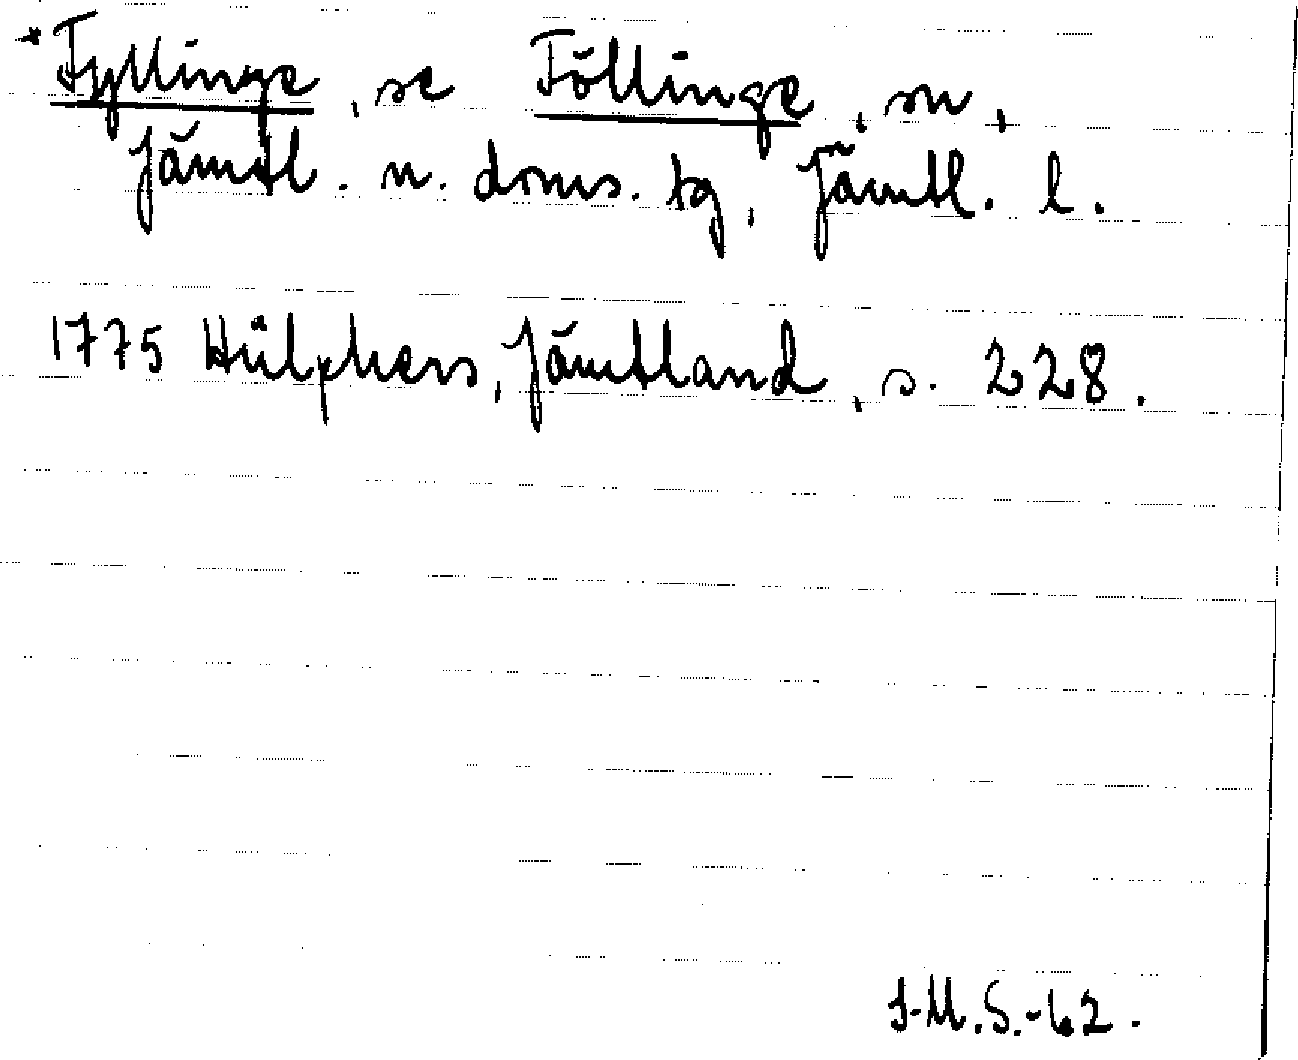 *Fyllinge, se Föllinge, sn,
Jämtl. n. doms. tg, Jämtl. l.
1775 Hülphers, Jämtland, s. 228.
J-M.S.-62.